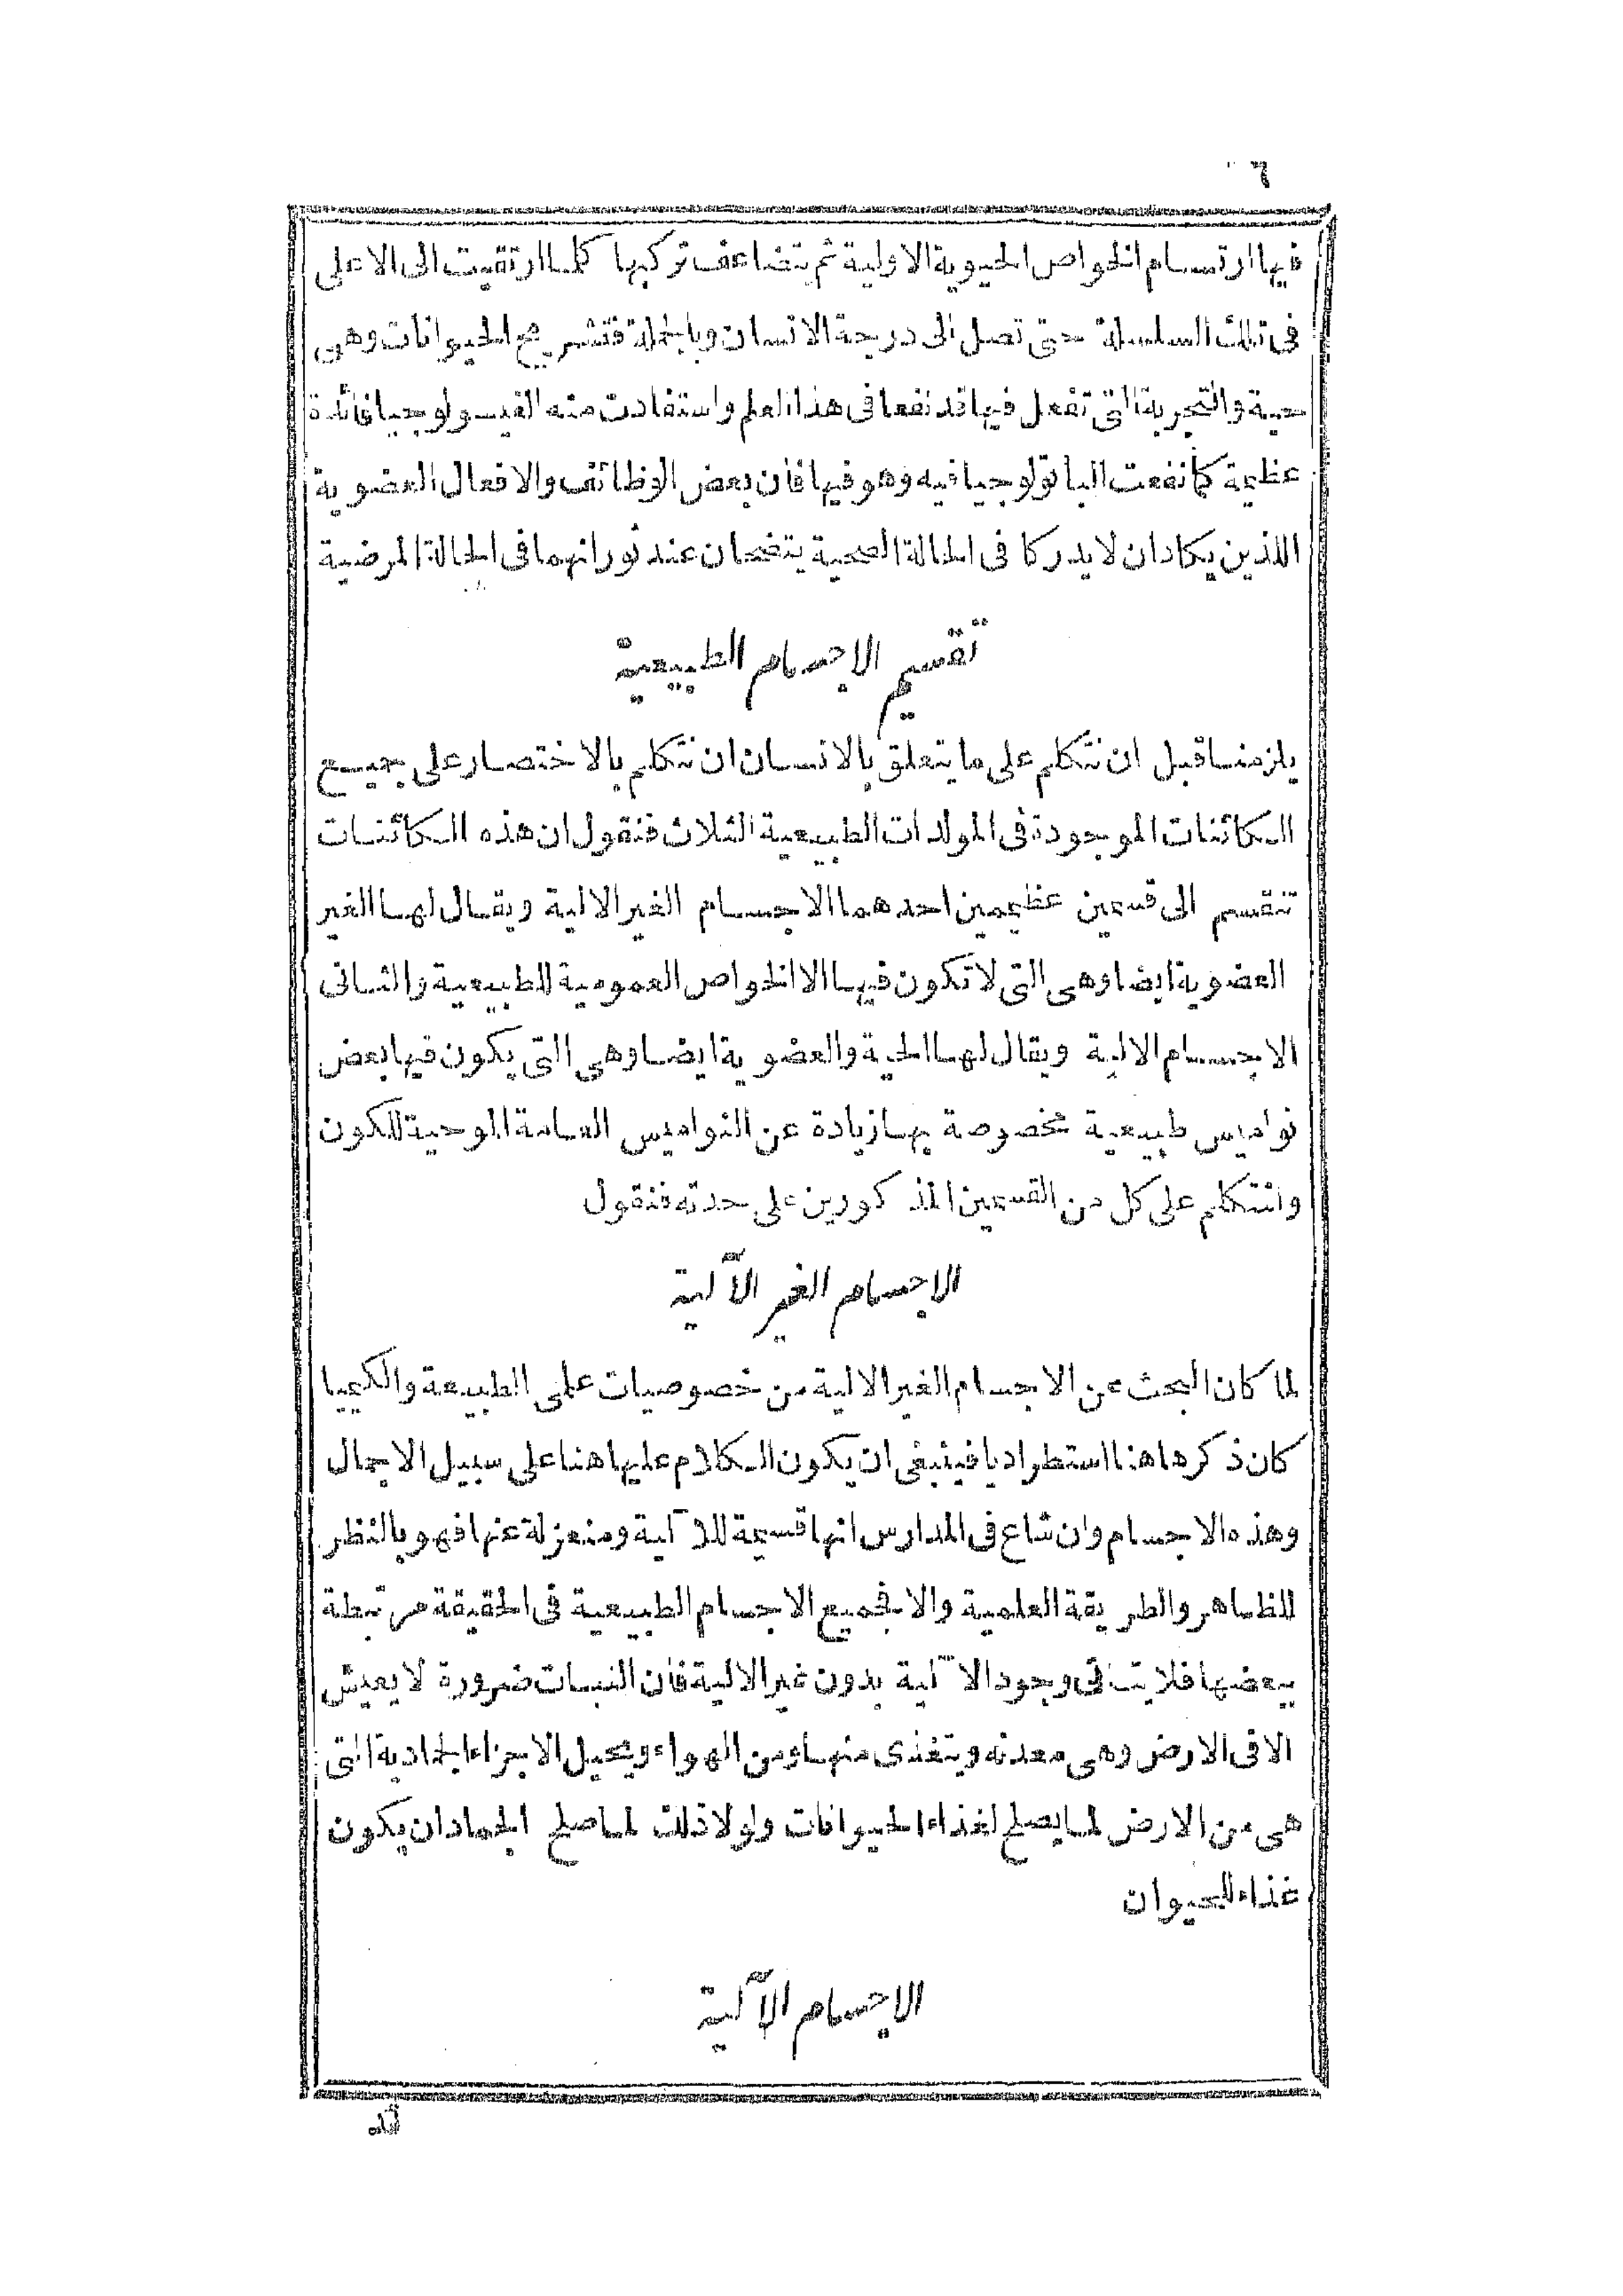 ٦
فيها ارتسام الخواص الحيوية الاولية ثم يتضاعف تركبها كلما ارتقيت الى الاعلى
فى تلك السلسلة حتى تصل الى درجة الانسان وبالجملة فتشريح الحيوانات وهى
حية والتجربة التى تفعل فيها قد نفعا فى هذا العلم واستفادت منه الفيسولوجيا فائدة
عظيمة كما نفعت الباتولوجيا فيه وهو فيها فان بعض الوظائف والافعال العضوية
اللذين يكادان لا يدركا فى الحالة الصحية يتضحان عند ثورانهما فى الحالة المرضية
تقسيم الاجسام الطبيعية
يلزمنا قبل ان نتكلم على ما يتعلق بالانسان ان نتكلم بالاختصار على جميع
الكائنات الموجودة فى المولدات الطبيعية الثلاث فنقول ان هذه الكائنات
تنقسم الى قسمين عظيمين احدهما الاجسام الغير الالية ويقال لها الغير
العضوية ايضا وهى التى لا تكون فيها الا الخواص العمومية الطبيعية والثانى
الاجسام الالية ويقال لها الحية والعضوية ايضا وهى التى يكون فيها بعض
نواميس طبيعية مخصوصة بها زيادة عن النواميس العامة الموجبة للكون
ولنتكلم على كل من القسمين المذكورين على حدته فنقول
الاجسام الغير الآلية
لما كان البحث عن الاجسام الغير الالية من خصوصيات علمى الطبيعة والكيميا
كان ذكرها هنا استطراديا فينبغى ان يكون الكلام عليها هنا على سبيل الاجمال
وهذه الاجسام وان شاع فى المدارس انها قسيمة للآلية ومنعزلة عنها فهو بالنظر
للظاهر والطريقة العلمية والا فجميع الاجسام الطبيعية فى الحقيقة مرتبطة
ببعضها فلا يتأتى وجود الآلية بدون غير الالية فان النبات ضرورة لا يعيش
الا فى الارض وهى معدنه ويتغذى منها ومن الهواء ويحيل الاجزاء الجمادية التى
هى من الارض لما يصلح لغذاء الحيوانات ولولا ذلك لما صلح الجماد ان يكون
غذاء للحيوان
الاجسام الآلية